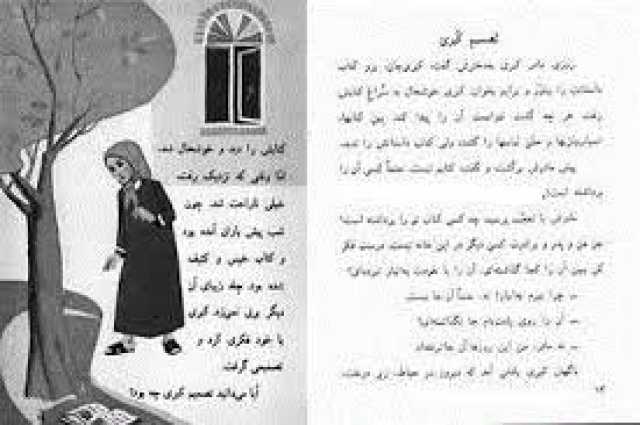 تصمیم کبری
روزی مادر کبری به‌دخترش گفت: کبری‌جان، برو کتاب
داستانت را بیاور و برایم بخوان. کبری خوشحال به سُراغِ کتابش
رفت. هر چه گشت نتوانست آن را پیدا کند. بین کتابها،
اسباب‌بازیها و حتی لباسها را گشت، ولی کتاب داستانش را ندید.
پیش مادرش برگشت و گفت: کتابم نیست. حتماً کسی آن را
برداشته است.
مادرش با تعجّب پرسید: چه کسی کتاب تو را برداشته است؟
جز من و پدر و برادرت کسی دیگر در این خانه نیست. درست فکر
کن ببین آن را کجا گذاشته‌ای. آن را با خودت به‌انبار نبرده‌ای؟
ـ چرا ببرم به‌انبار؟ نه، حتماً آن جا نیست.
ـ آن را روی پشت‌بام جا نگذاشته‌ای؟
ـ نه مادر، من این روزها آن جا نرفته‌ام.
ناگهان کبری یادش آمد که دیروز در حیاط، زیر درخت،
کتابش را دید و خوشحال شد.
امّا وقتی که نزدیک رفت،
خیلی ناراحت شد. چون
شب پیش باران آمده بود
و کتاب خیس و کثیف
شده بود. جلد زیبای آن
دیگر برق نمی‌زد. کبری
با خود فکری کرد و
تصمیمی گرفت.
آیا می‌دانید تصمیم کبری چه بود؟